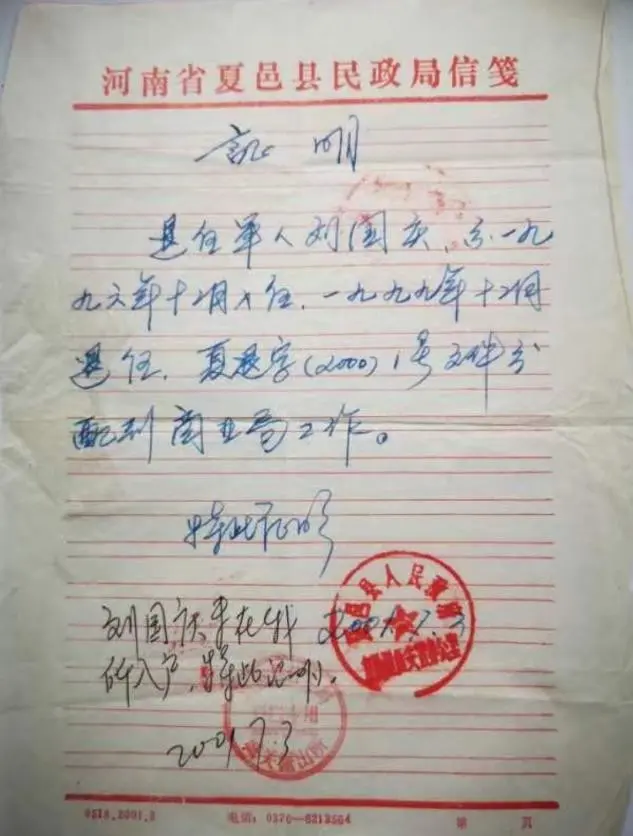 河南省夏邑县民政局信笺
証 明
退伍军人刘国庆,系一九
九六年十二月入伍,一九九九年十二月
退伍,夏退字(2000)1号文件分
配到商业局工作。
特此证明
刘国庆未在我
所入户,特此证明。
2001.7.3
县人民政府
2001.7.3
0518.2001.3 电话:0370—6213564 第 页